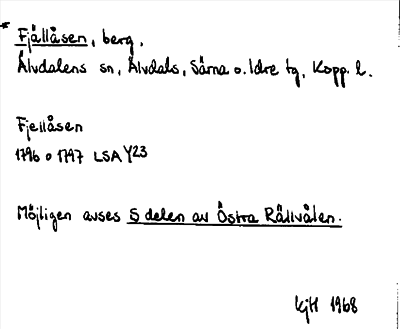 Fjällåsen, berg.
Älvdalens sn, Älvdals, Särna o. Idre tg, Kopp. l.
Fjellåsen
1796 o 1797 LSA Y23
Möjligen avses S delen av Östra Rällvålen.
KjH 1968